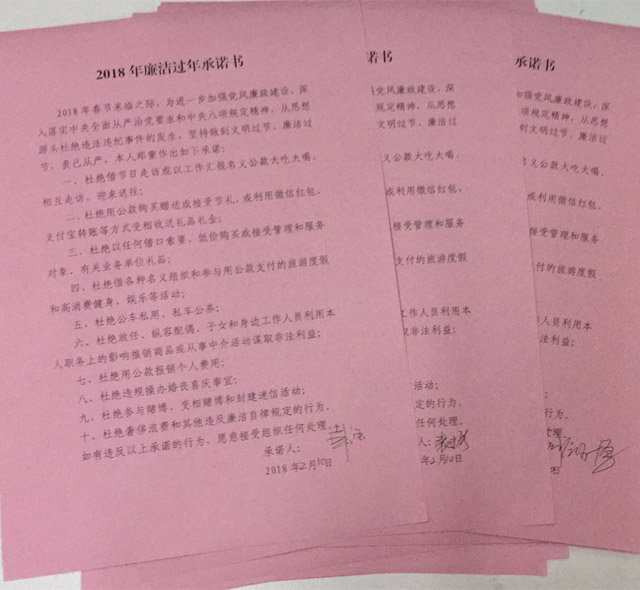 2018 年廉洁过年承诺书
2018 年春节来临之际，为进一步加强党风廉政建设，深
入落实中央全面从严治党要求和中央八项规定精神，从思想
源头杜绝违法违纪事件的发生，坚持做到文明过节、廉洁过
节，责己从严，本人郑重作出如下承诺：
一、杜绝借节日走访或以工作汇报名义公款大吃大喝、
相互走访、迎来送往；
二、杜绝用公款购买赠送或接受节礼，或利用微信红包、
支付宝转账等方式变相收送礼品礼金；
三、杜绝以任何借口索要、低价购买或接受管理和服务
对象、有关业务单位礼品；
四、杜绝借各种名义组织和参与用公款支付的旅游度假
和高消费健身、娱乐等活动；
五、杜绝公车私用、私车公养；
六、杜绝放任、纵容配偶、子女和身边工作人员利用本
人职务上的影响推销商品或从事中介活动谋取非法利益；
七、杜绝用公款报销个人费用；
八、杜绝违规操办婚丧喜庆事宜；
九、杜绝参与赌博、变相赌博和封建迷信活动；
十、杜绝奢侈浪费和其他违反廉洁自律规定的行为。
如有违反以上承诺的行为，愿意接受组织任何处理。
承诺人：
2018 年2月10日
诺书
党风廉政建设，深
规定精神，从思想
文明过节、廉洁过
义公款大吃大喝、
或利用微信红包、
接受管理和服务
支付的旅游度假
工作人员利用本
取非法利益；
活动；
定的行为。
任何处理。
人：
年2月10日
承诺书
加强党风廉政建设，深
项规定精神，从思想
到文明过节、廉洁过
名义公款大吃大喝、
或利用微信红包、
接受管理和服务
付的旅游度假
人员利用本
法利益；
动；
行为。
处理。
日